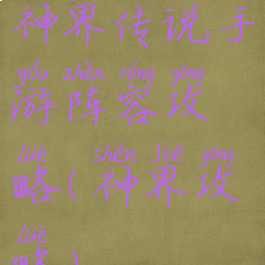 神界传说手
yóu zhèn róng gōng
游阵容攻
lüè shén jiè gōng
略(神界攻
lüè
略)